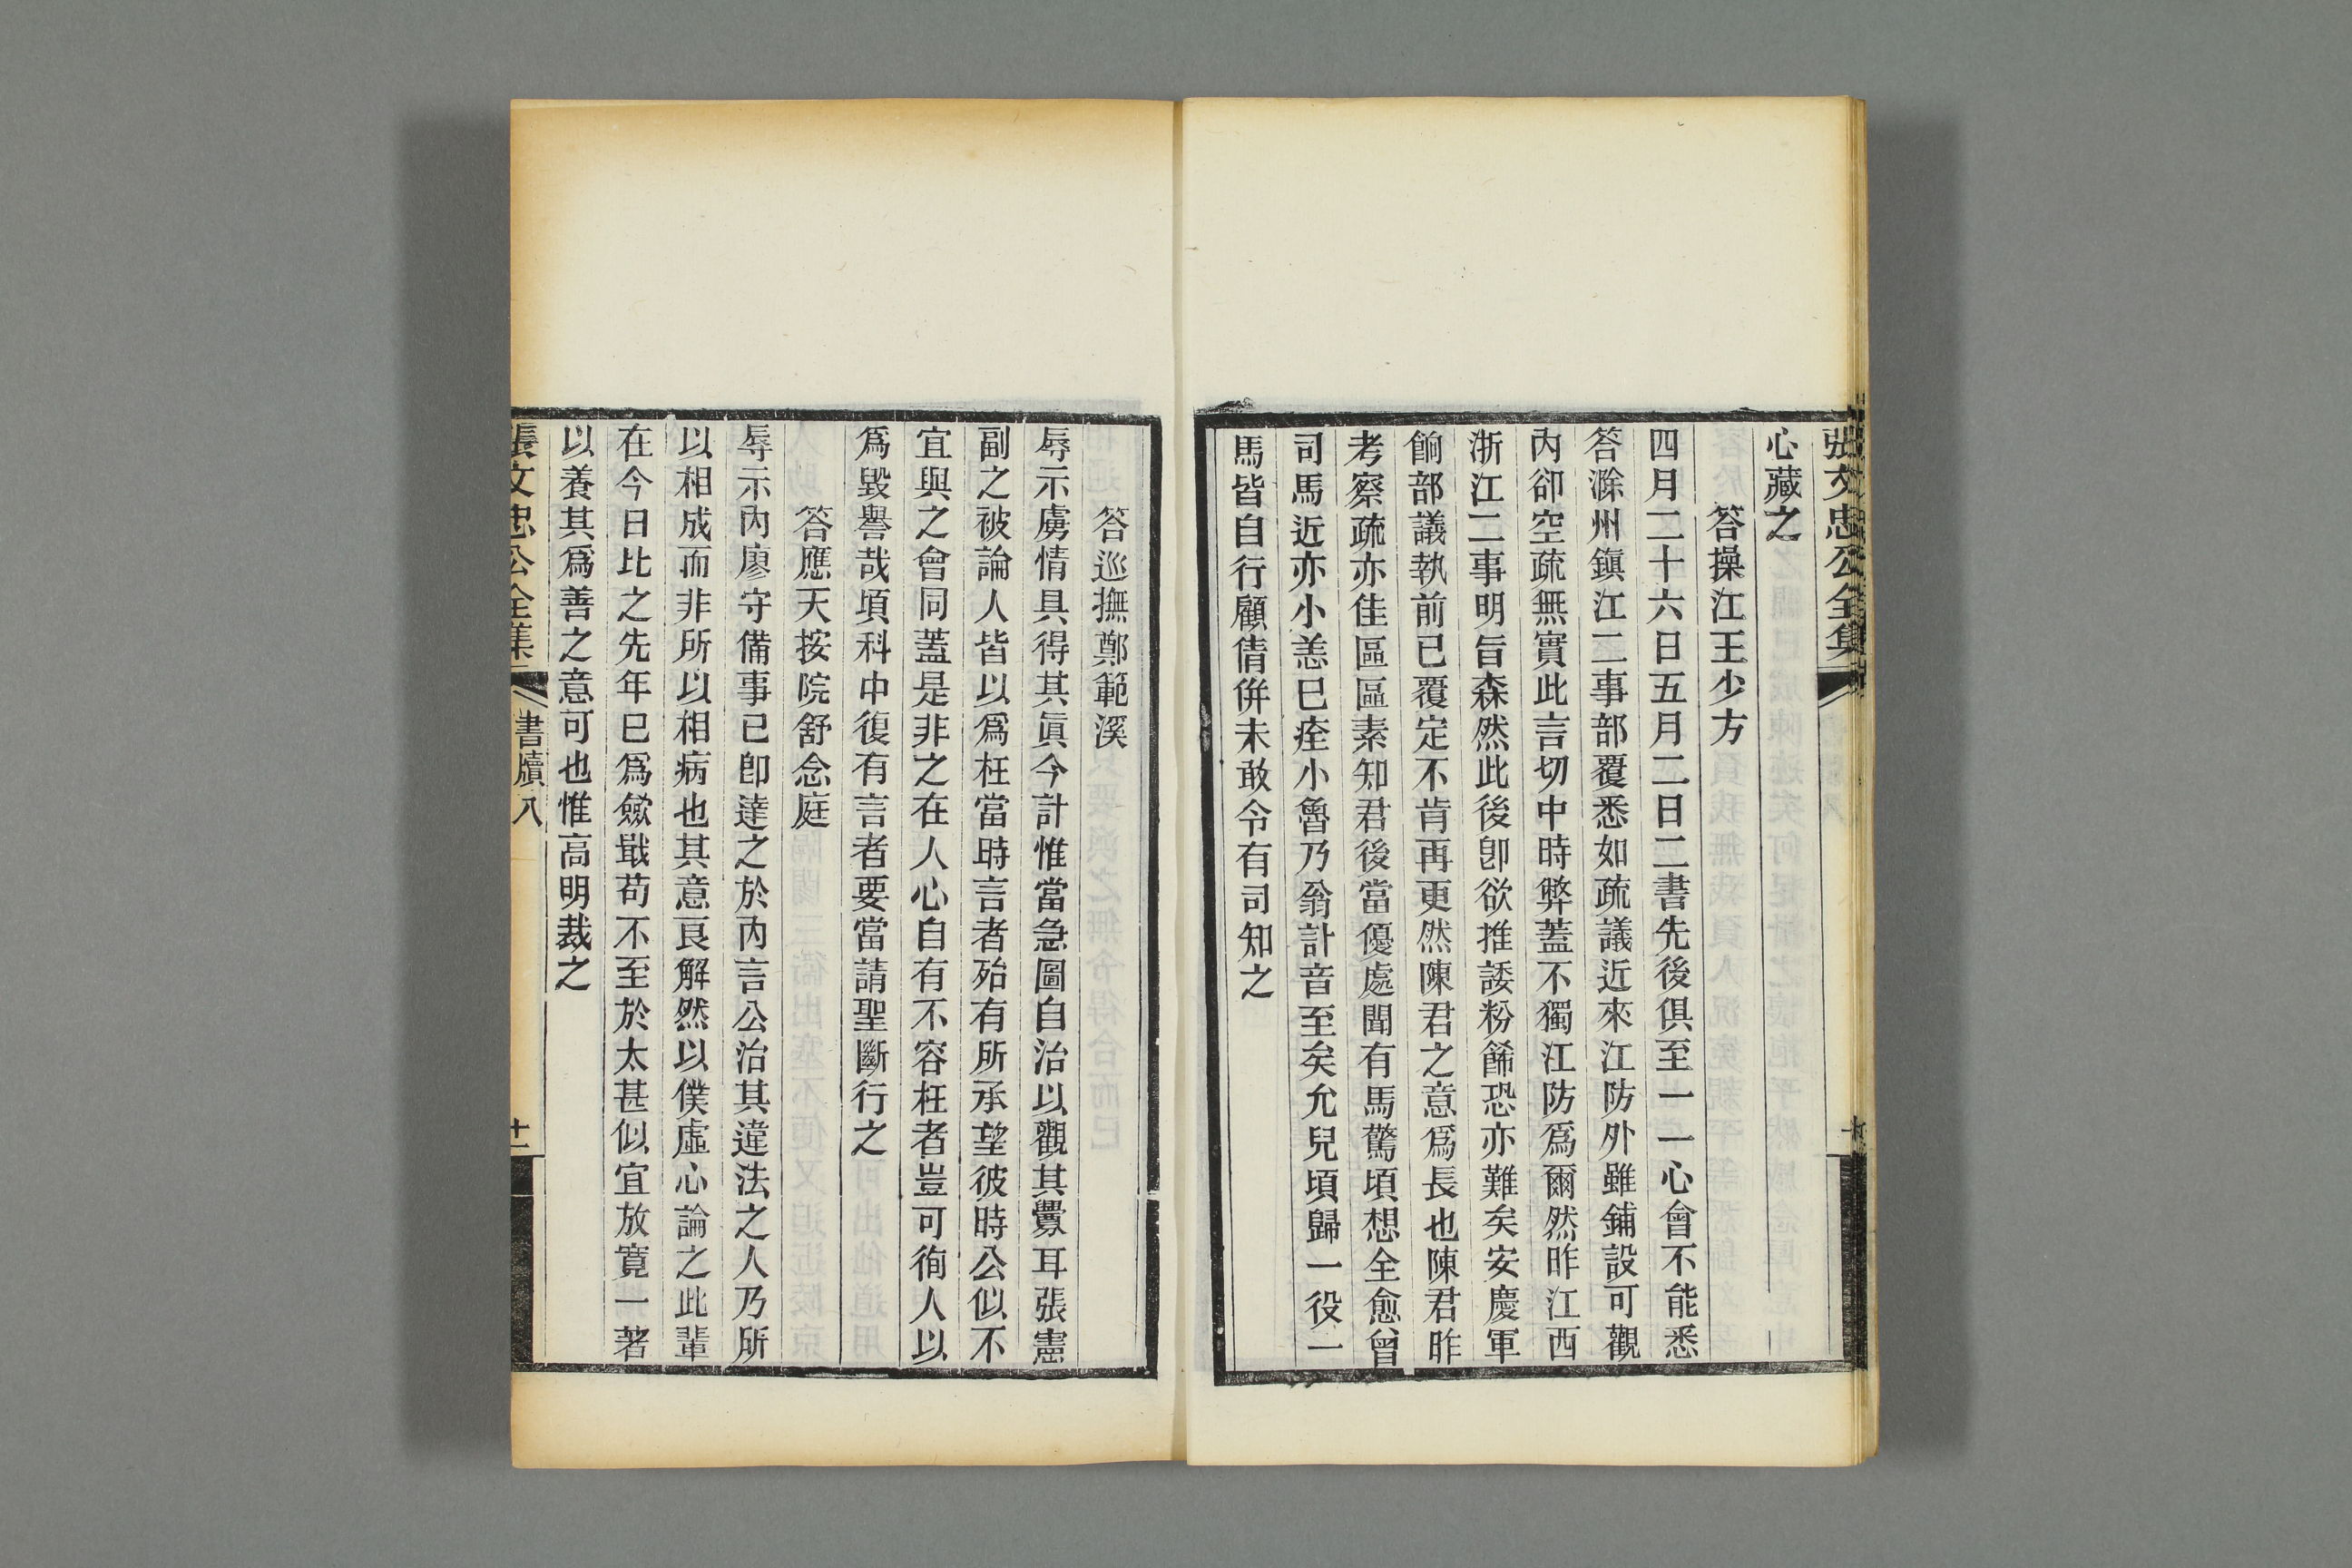 張文忠公全集
心藏之
答操江王少方
四月二十六日五月二日二書先後俱至一一心會不能悉
答滁州鎭江二事部覆悉如疏議近來江防外雖鋪設可觀
內卻空疏無實此言切中時弊蓋不獨江防爲爾然昨江西
浙江二事明旨森然此後卽欲推諉粉餙恐亦難矣安慶軍
餉部議執前已覆定不肯再更然陳君之意爲長也陳君昨
考察疏亦佳區區素知君後當優處聞有馬驚頃想全愈曾
司馬近亦小恙巳痊小魯乃翁訃音至矣允兒頃歸一役二
馬皆自行顧倩倂未敢令有司知之
答巡撫鄭範溪
辱示虜情具得其眞今計惟當急圖自治以觀其釁耳張憲
副之被論人皆以爲枉當時言者殆有所承望彼時公似不
宜與之會同蓋是非之在人心自有不容枉者豈可徇人以
爲毀譽哉頃科中復有言者要當請聖斷行之
答應天按院舒念庭
辱示內廖守備事已卽達之於內言公治其違法之人乃所
以相成而非所以相病也其意良解然以僕虛心論之此輩
在今日比之先年巳爲歛戢苟不至於太甚似宜放寬一著
以養其爲善之意可也惟高明裁之
張文忠公全集
書牘八
十一